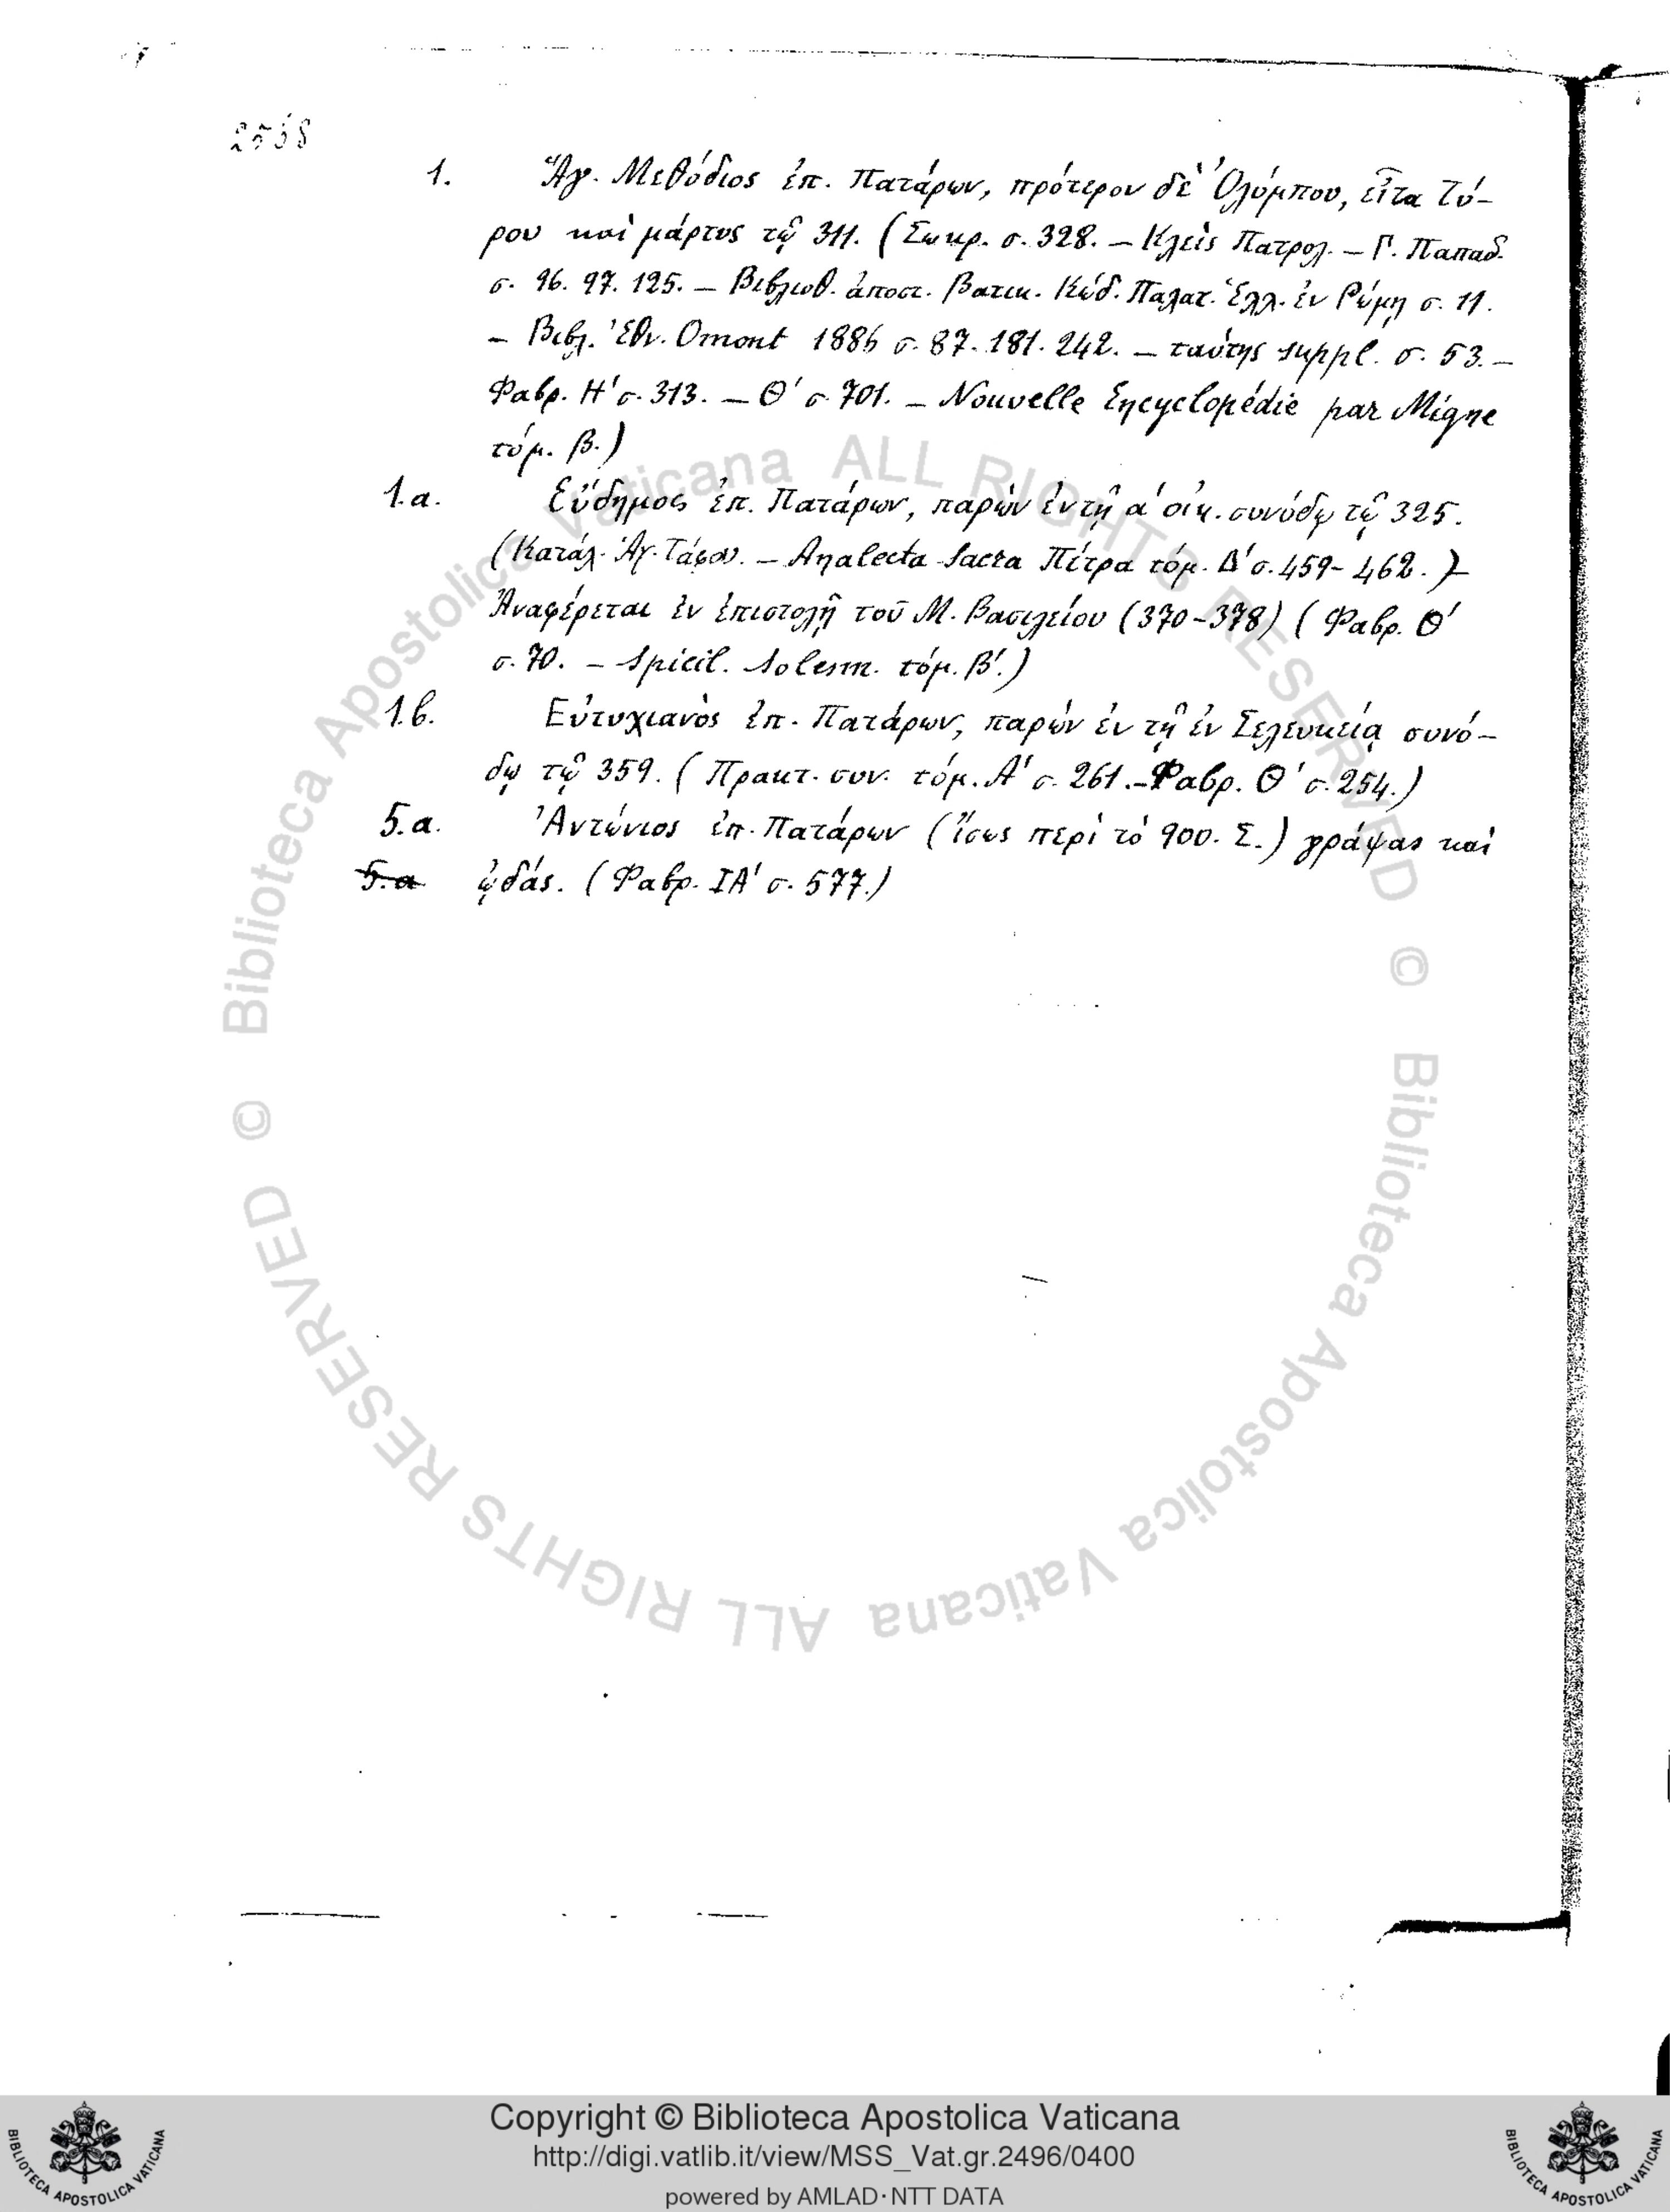 2558
1. Ἅγ. Μεθόδιος ἐπ. Πατάρων, πρότερον δὲ Ὀλύμπου, εἶτα Τύ-
ρου καὶ μάρτυς τῷ 311. (Σωκρ. σ. 328. – Κλεὶς Πατρολ. – Γ. Παπαδ.
σ. 96. 97. 125. – Βιβλιοθ. ἀποστ. Βατικ. Κώδ. Παλατ. Ἑλλ. ἐν Ρώμῃ σ. 11.
– Βιβλ. Ἐθν. Omont 1886 σ. 87. 181. 242. – ταύτης suppl. σ. 53. –
Φαβρ. Η′ σ. 313. – Θ′ σ. 701. – Nouvelle Encyclopédie par Migne
τόμ. β.)
1.α. Εὔδημος ἐπ. Πατάρων, παρὼν ἐν τῇ α′ οἰκ. συνόδῳ τῷ 325.
(Κατάλ. Ἁγ. Τάφου. – Analecta Sacra Πίτρα τόμ. Δ′ σ. 459-462.)
Ἀναφέρεται ἐν ἐπιστολῇ τοῦ Μ. Βασιλείου (370-378) (Φαβρ. Θ′
σ. 70. – Spicil. Solesm. τόμ. β′.)
1.β. Εὐτυχιανὸς ἐπ. Πατάρων, παρὼν ἐν τῇ ἐν Σελευκείᾳ συνό-
δῳ τῷ 359. (Πρακτ. συν. τόμ. Α′ σ. 261. – Φαβρ. Θ′ σ. 254.)
5.α. Ἀντώνιος ἐπ. Πατάρων (ἴσως περὶ τὸ 900. Σ.) γράψας καὶ
5.α ᾠδάς. (Φαβρ. ΙΑ′ σ. 577.)
© Biblioteca Apostolica Vaticana ALL RIGHTS RESERVED
© Biblioteca Apostolica Vaticana ALL RIGHTS RESERVED
Copyright © Biblioteca Apostolica Vaticana
http://digi.vatlib.it/view/MSS_Vat.gr.2496/0400
powered by AMLAD·NTT DATA
BIBLIOTECA APOSTOLICA VATICANA
BIBLIOTECA APOSTOLICA VATICANA